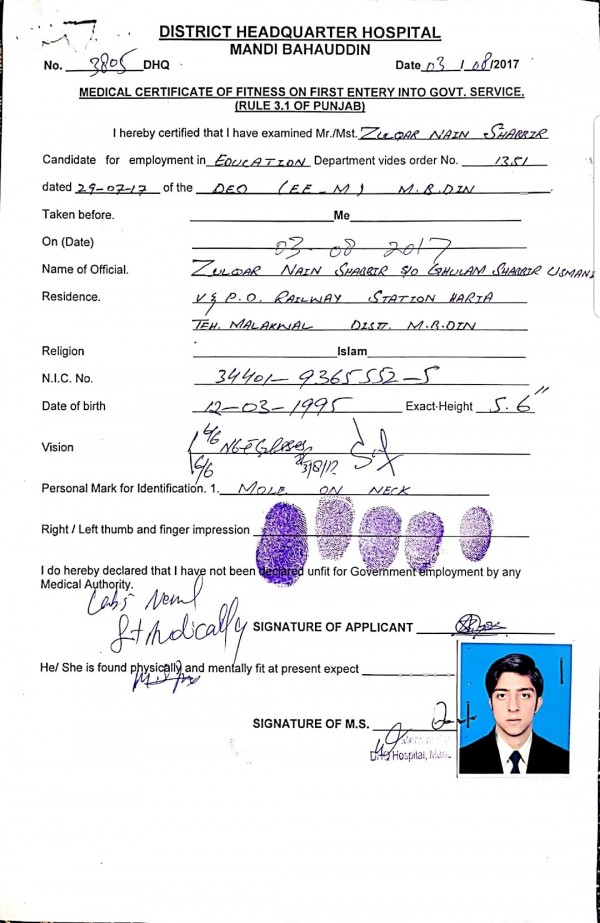 DISTRICT HEADQUARTER HOSPITAL
MANDI BAHAUDDIN
No. 3805 DHQ Date 03/08/2017
MEDICAL CERTIFICATE OF FITNESS ON FIRST ENTERY INTO GOVT. SERVICE.
(RULE 3.1 OF PUNJAB)
I hereby certified that I have examined Mr./Mst. ZULQAR NAIN SHABBIR
Candidate for employment in EDUCATION Department vides order No. 1351
dated 29-07-17 of the DEO (EE-M) M.B.DIN
Taken before. Me
On (Date) 03-08-2017
Name of Official. ZULQAR NAIN SHABBIR S/O GHULAM SHABBIR USMANI
Residence. V & P.O. RAILWAY STATION HARIA
TEH. MALAKWAL DISTT. M.B.DIN
Religion Islam
N.I.C. No. 34401-9365552-5
Date of birth 12-03-1995 Exact-Height 5.6"
Vision 6/6
6/6
Personal Mark for Identification. 1. MOLE ON NECK
Right / Left thumb and finger impression
I do hereby declared that I have not been declared unfit for Government employment by any
Medical Authority.
SIGNATURE OF APPLICANT
He/ She is found physically and mentally fit at present expect
SIGNATURE OF M.S.
DHQ Hospital,